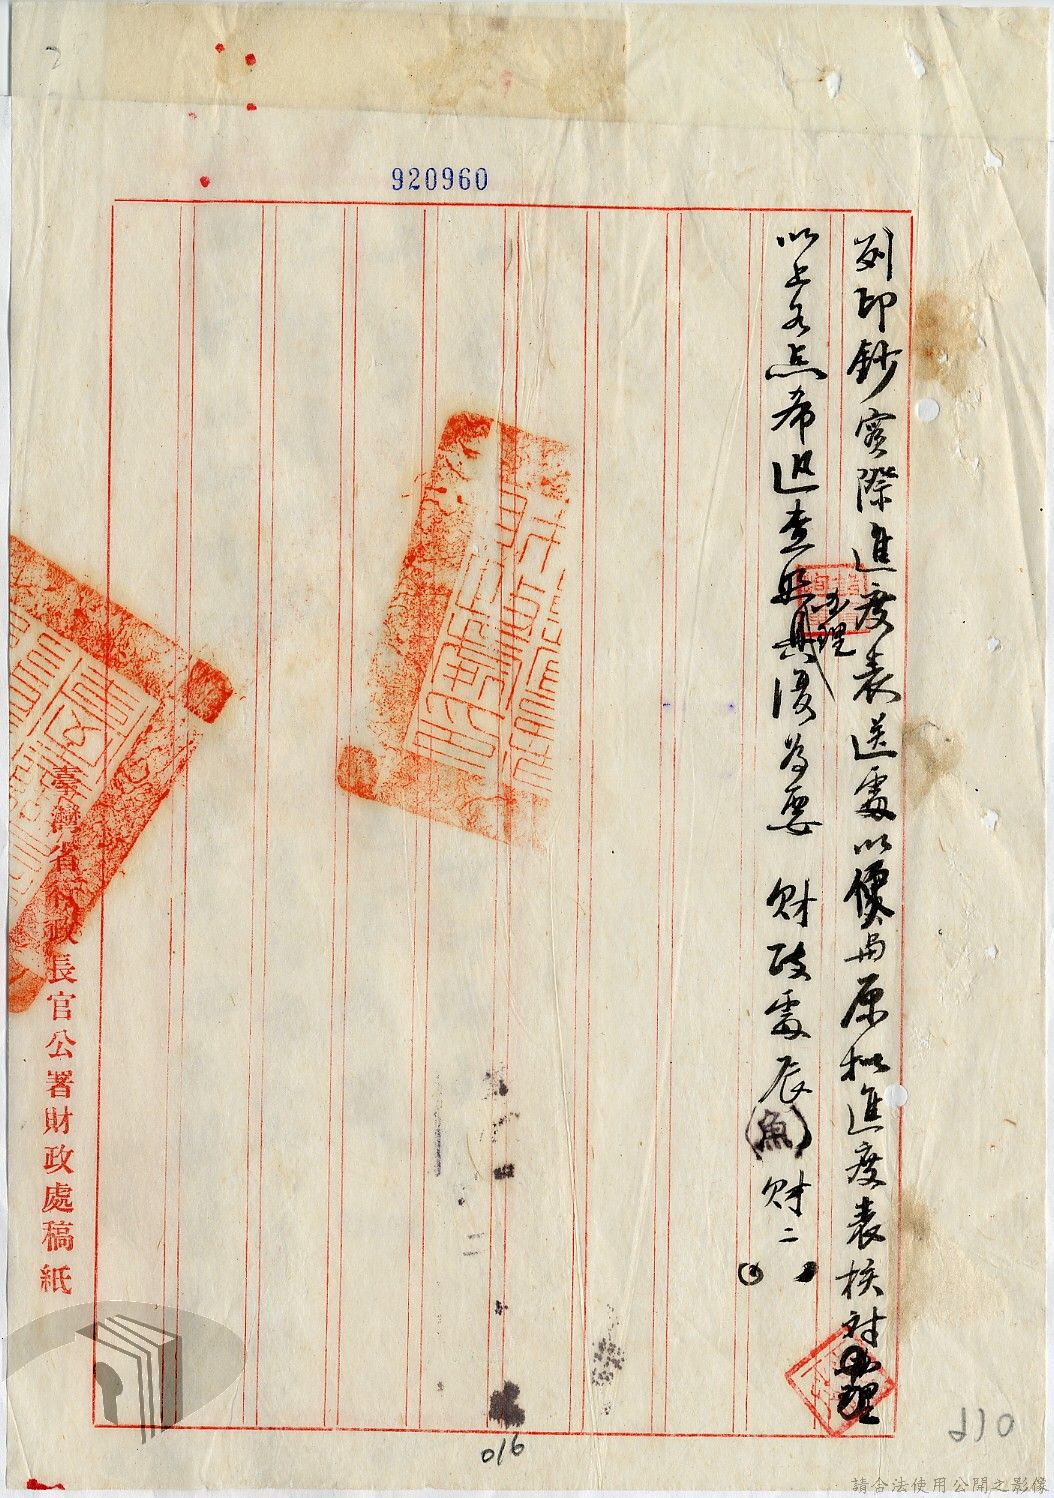 920960
列印鈔實際進度表送處以便與原拟進度表核對办理
以上各点希迅查照具復為要 財政處辰(魚)財二
办理
臺灣省行政長官公署財政處稿紙
016
請合法使用公開之影像